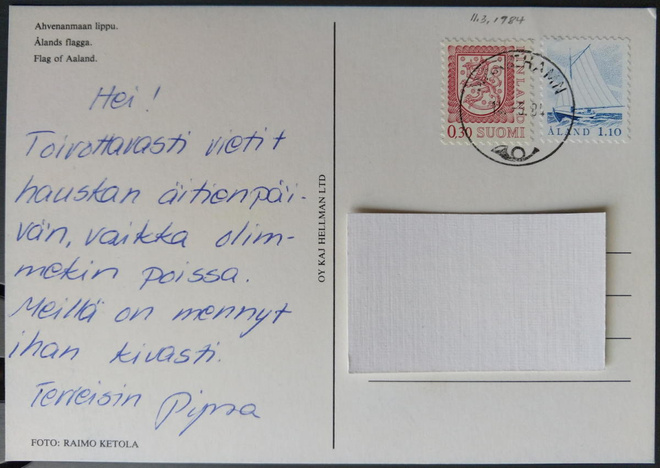 Ahvenanmaan lippu.
Ålands flagga.
Flag of Aaland.
Hei!
Toivottavasti vietit
hauskan äitienpäi-
vän, vaikka olim-
mekin poissa.
Meillä on mennyt
ihan kivasti.
Terveisin Pipsa
FOTO: RAIMO KETOLA
OY KAJ HELLMAN LTD
11.3.1984
0,30 SUOMI
FINLAND
ÅLAND 1.10